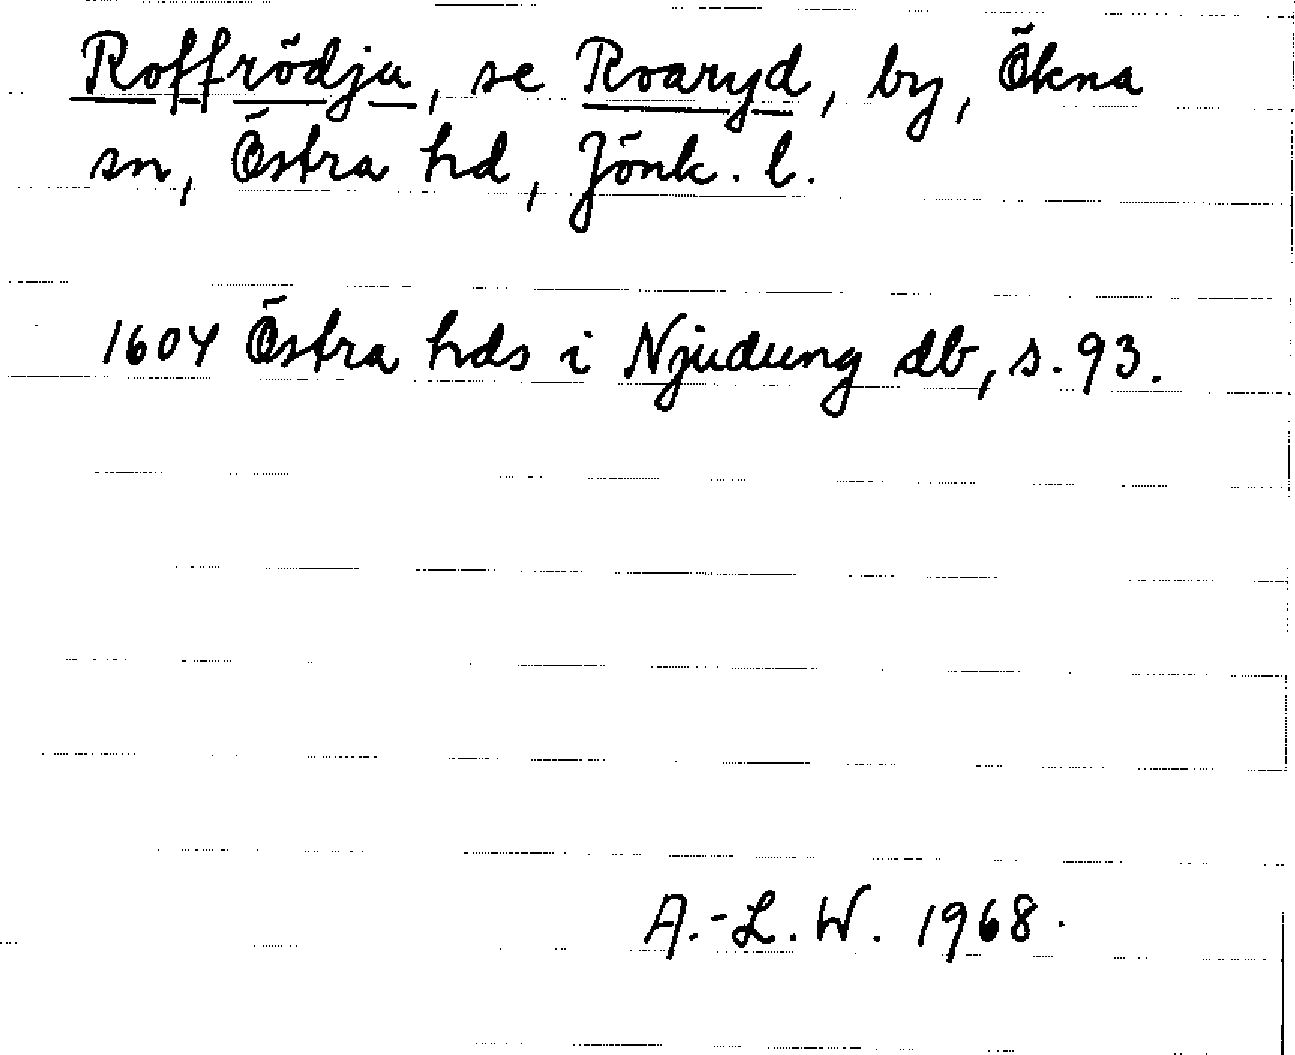 Roffrödja, se Roaryd, by, Ökna
sn, Östra hd, Jönk. l.
1604 Östra hds i Njudung db, s. 93.
A.-L. W. 1968.